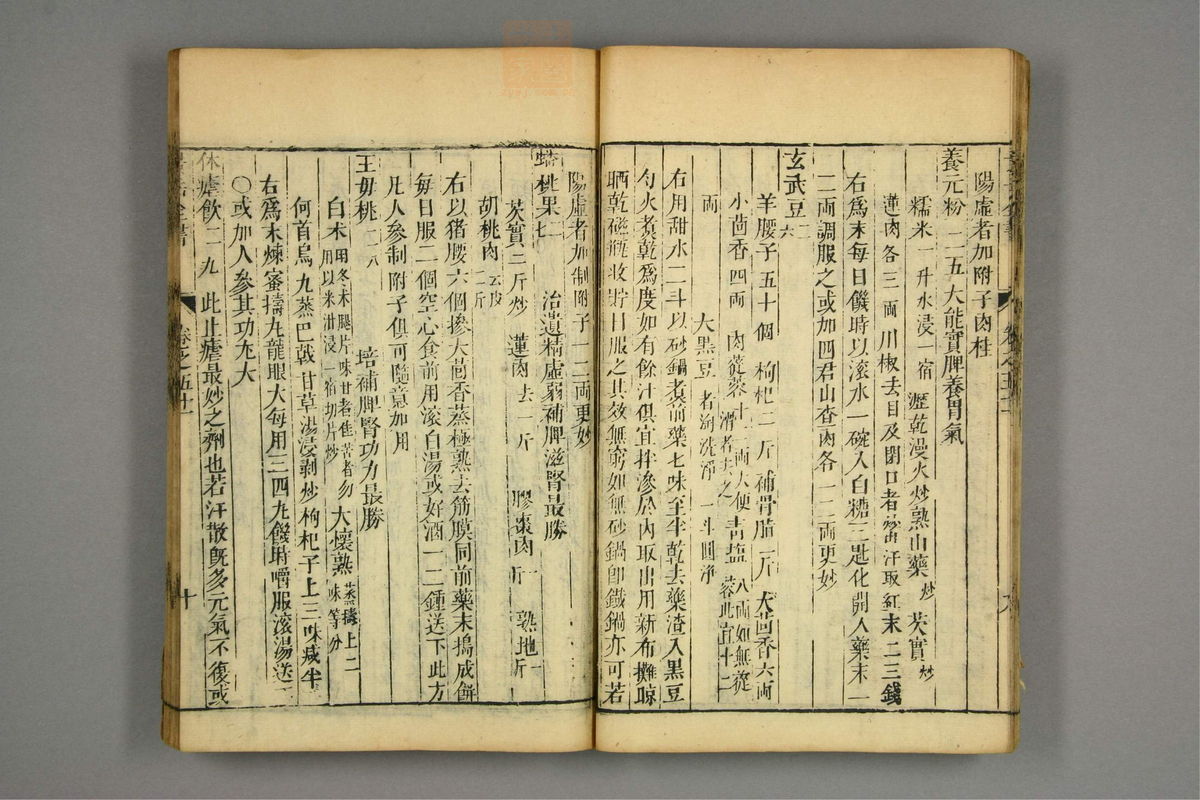 陽虛者加附子肉桂
養元粉 二五 大能實脾養胃氣
糯米一升水浸一宿 瀝乾漫火炒熟 山藥炒 芡實炒
蓮肉各三兩 川椒去目及閉口者炒出汗取紅末二三錢
右爲末每日饑時以滚水一碗入白糖三匙化開入藥末一
二兩調服之或加四君山查肉各一二兩更妙
玄武豆 二六
羊腰子五十個 枸杞二斤 補骨脂一斤 大茴香六兩
小茴香四兩 肉蓯蓉十二兩大便滑者去之 青鹽八兩如無蓯蓉此宜十二
兩 大黑豆者淘洗淨一斗圓淨
右用甜水二斗以砂鍋煮前藥七味至半乾去藥渣入黑豆
勻火煮乾爲度如有餘汁俱宜拌滲於內取出用新布攤晾
晒乾磁瓶收貯日服之其效無窮如無砂鍋卽鐵鍋亦可若
陽虛者加制附子一二兩更妙
蟠桃果 二七 治遺精虛弱補脾滋腎最勝
芡實二斤炒 蓮肉去一斤 膠棗肉一斤 熟地一斤
胡桃肉去皮二斤
右以猪腰六個摻大茴香蒸極熟去筋膜同前藥末搗成餅
每日服二個空心食前用滚白湯或好酒一二鍾送下此方
凡人參制附子俱可隨意加用
王母桃 二八 培補脾腎功力最勝
白术用冬术腿片味甘者佳苦者勿用以米泔浸一宿切片炒 大懷熟蒸擣上二味等分
何首烏九蒸 巴戟甘草湯浸剝炒 枸杞子上三味减半
右爲末煉蜜擣丸龍眼大每用三四丸饑時嚼服滚湯送下
○或加人參其功尤大
休瘧飲 二九 此止瘧最妙之劑也若汗散旣多元氣不復或
卷之五十
十